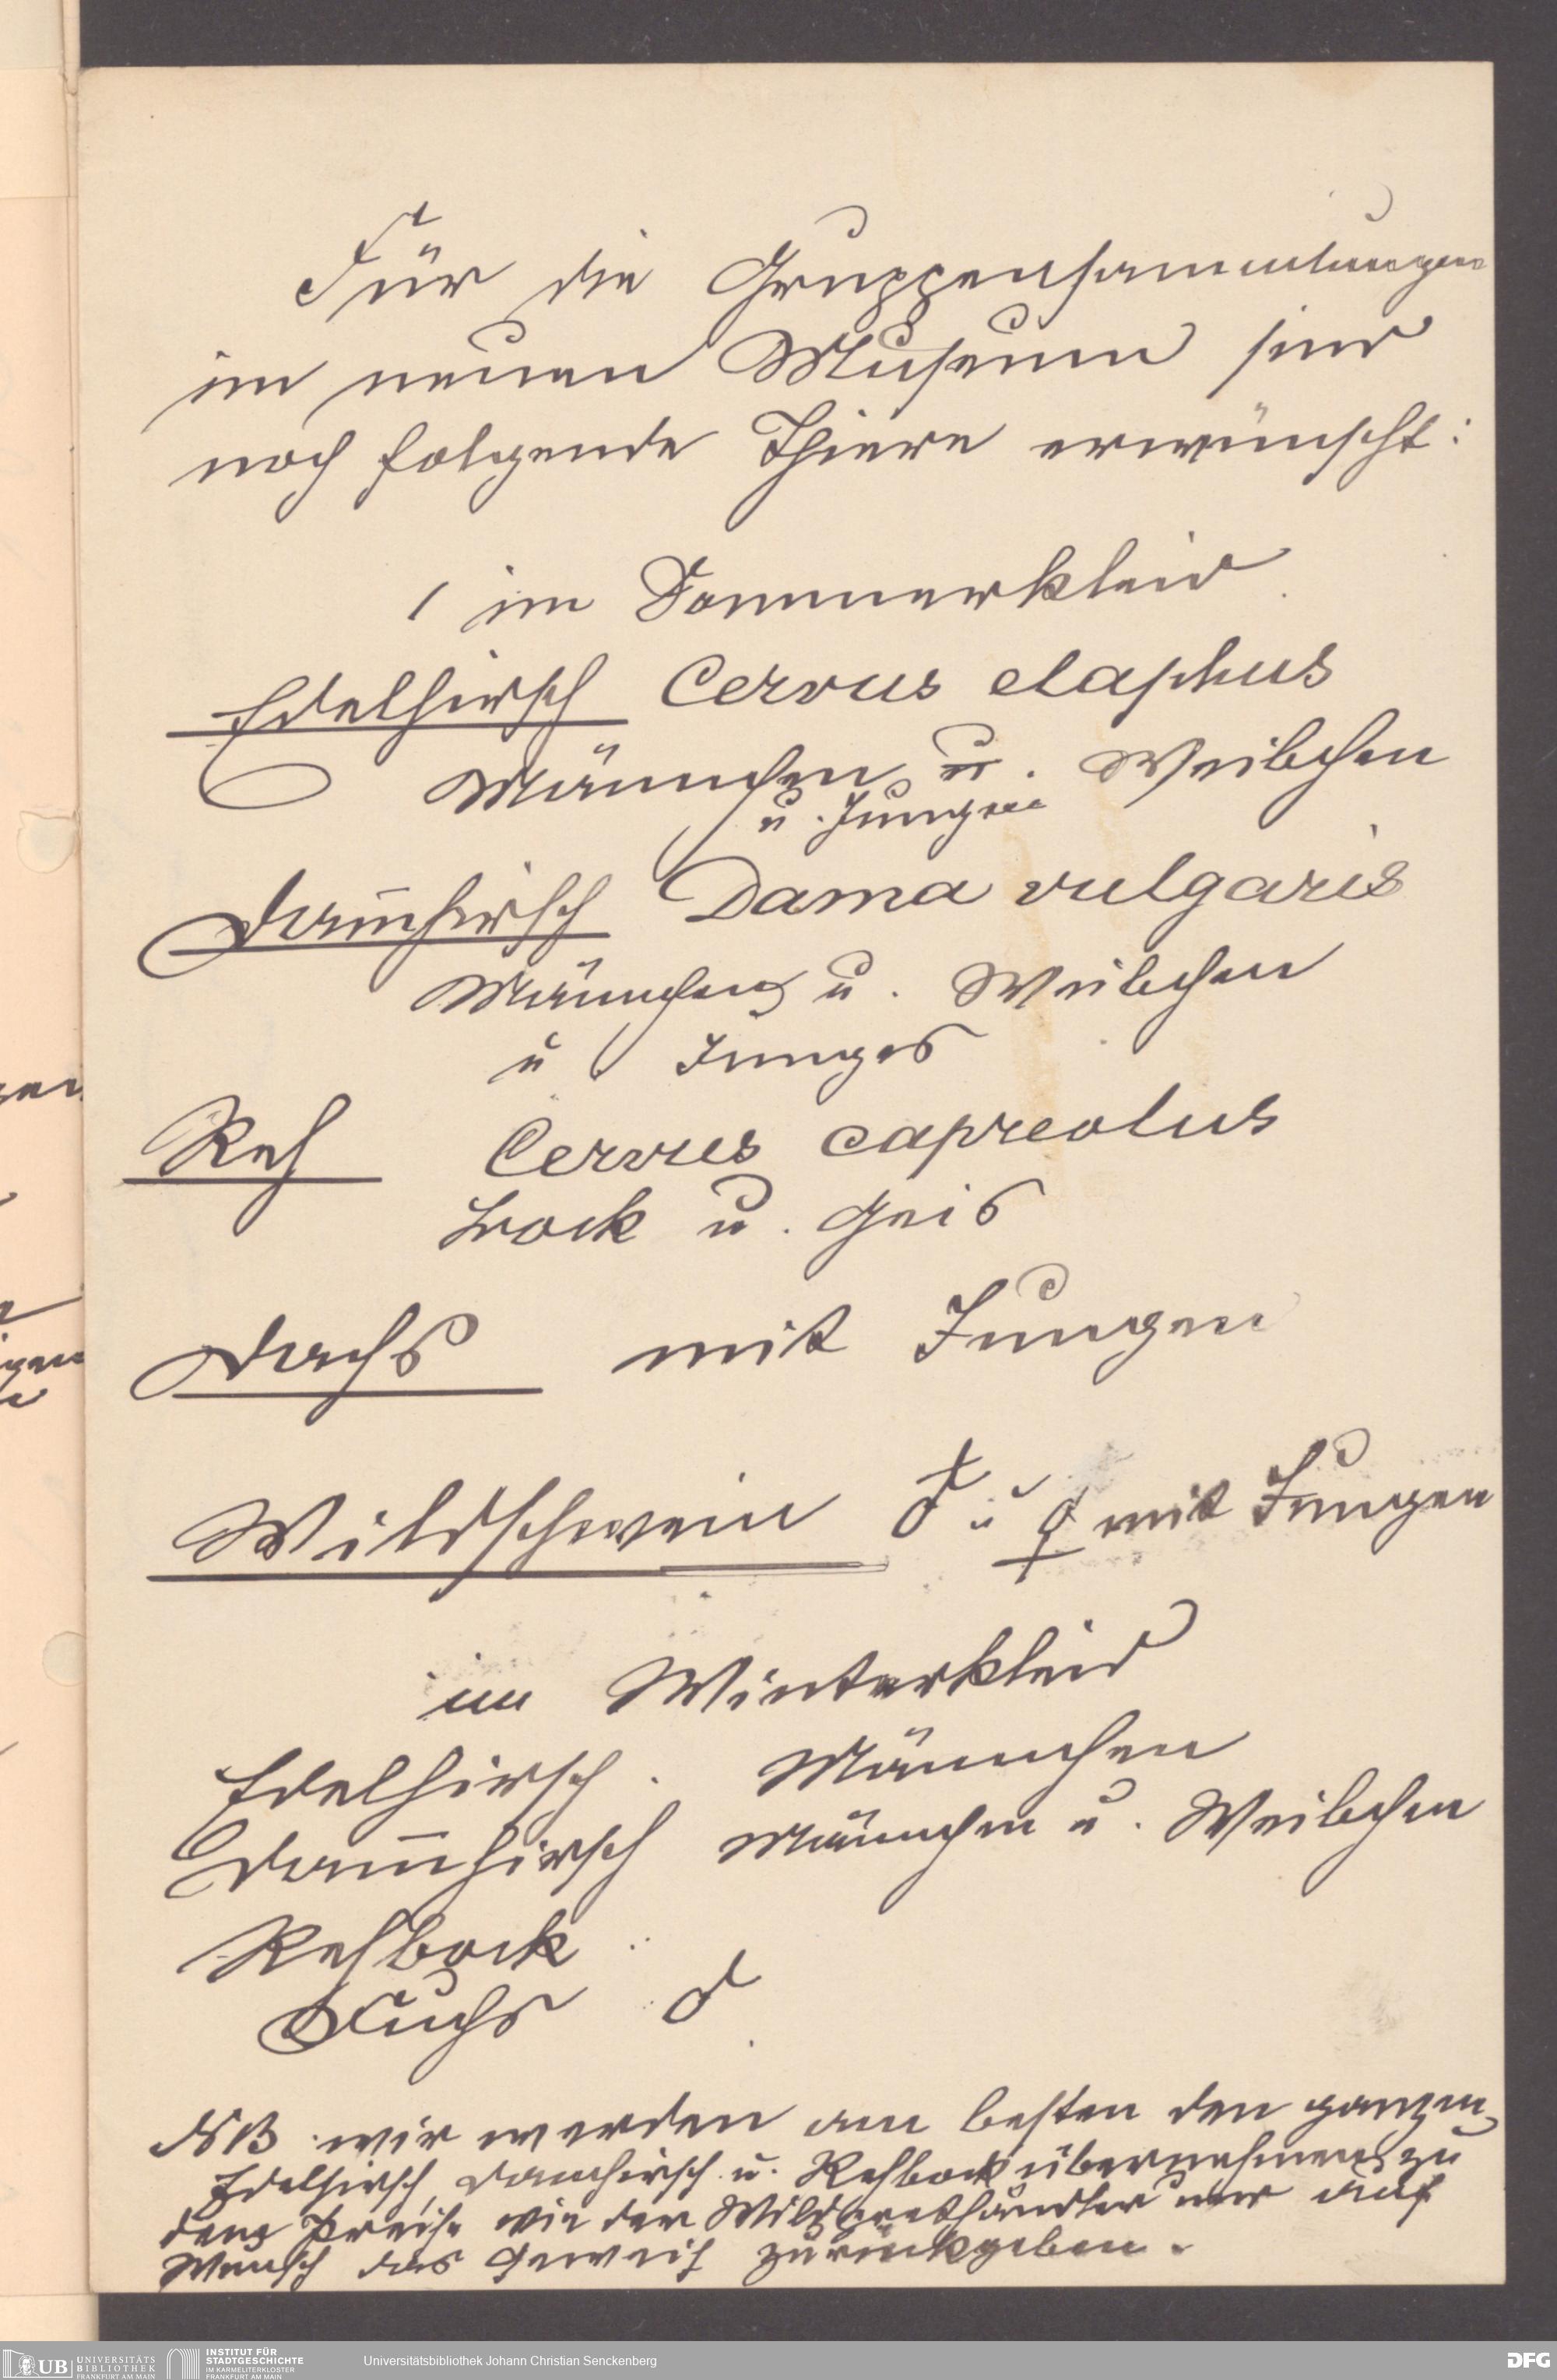 Für die Gruppensammlungen
im neuen Museum sind
noch folgende Thiere erwünscht:
1 im Sommerkleid
Edelhirsch Cervus elaphus
Männchen u. Weibchen
u. Junges
Dam̄hirsch Dama vulgaris
Männchen u. Weibchen
u. Junges
Reh Cervus capreolus
Bock u. Geis
Dachs mit Jungen
Wildschwein ♂ u ♀ mit Jungen
im Winterkleid
Edelhirsch. Männchen
Dam̄hirsch Männchen u. Weibchen
Rehbock
Fuchs ♂
NB. wir werden am besten den ganzen
Edelhirsch, Damhirsch u. Rehbock übernehmen zu
dem Preise wie der Wildprethändler auf
Wunsch das Geweih zurückgeben.
UB UNIVERSITÄTS
BIBLIOTHEK
FRANKFURT AM MAIN
INSTITUT FÜR
STADTGESCHICHTE
IM KARMELITERKLOSTER
FRANKFURT AM MAIN
Universitätsbibliothek Johann Christian Senckenberg
DFG